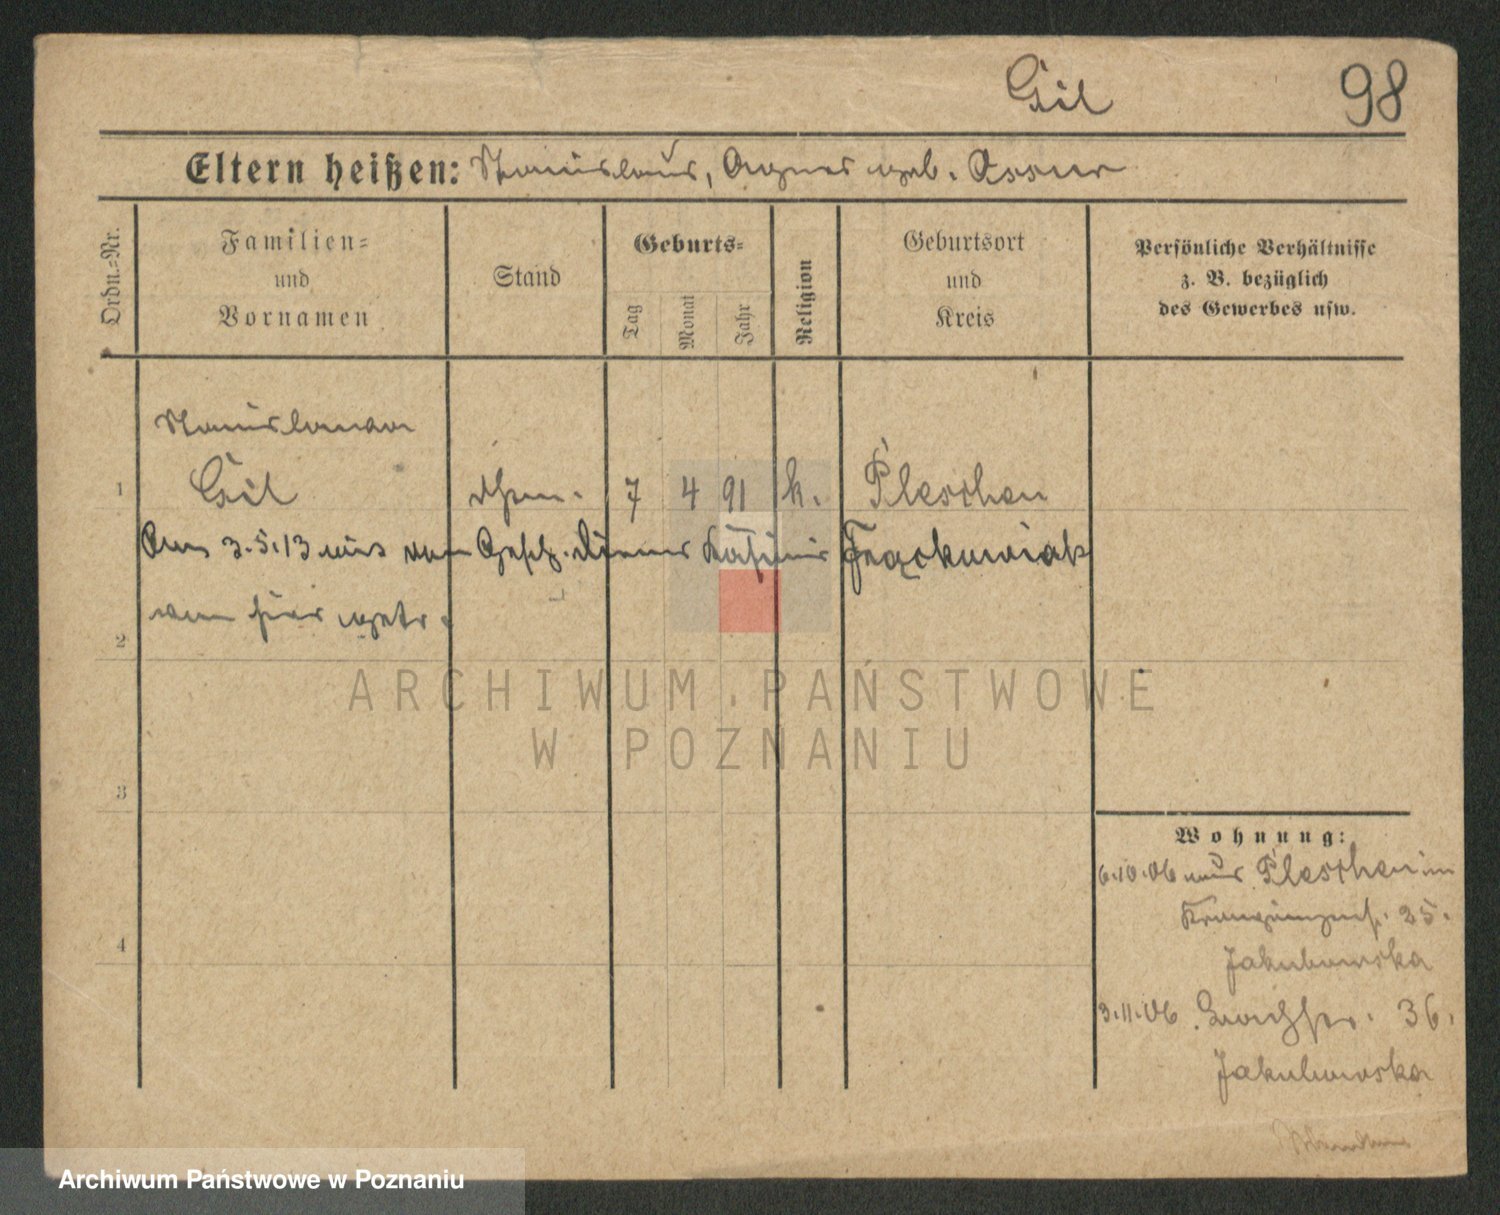 Gil 98
Eltern heißen: Stanislaus, Agnes geb.
Ordn.-Nr.
Familien-
und
Vornamen
Stand
Geburts-
Tag
Monat
Jahr
Religion
Geburtsort
und
Kreis
Persönliche Verhältnisse
z. B. bezüglich
des Gewerbes usw.
Stanislawa
1 Gil 7 4 91 k. Pleschen
Am 3.5.13 mit dem Gesch. Diener Kasimir Frąckowiak
von hier getr.
2
3
4
Wohnung:
6.10.06 aus Pleschen in
25.
Jakubowska
3.11.06 36.
Jakubowska
ARCHIWUM PAŃSTWOWE
W POZNANIU
Archiwum Państwowe w Poznaniu